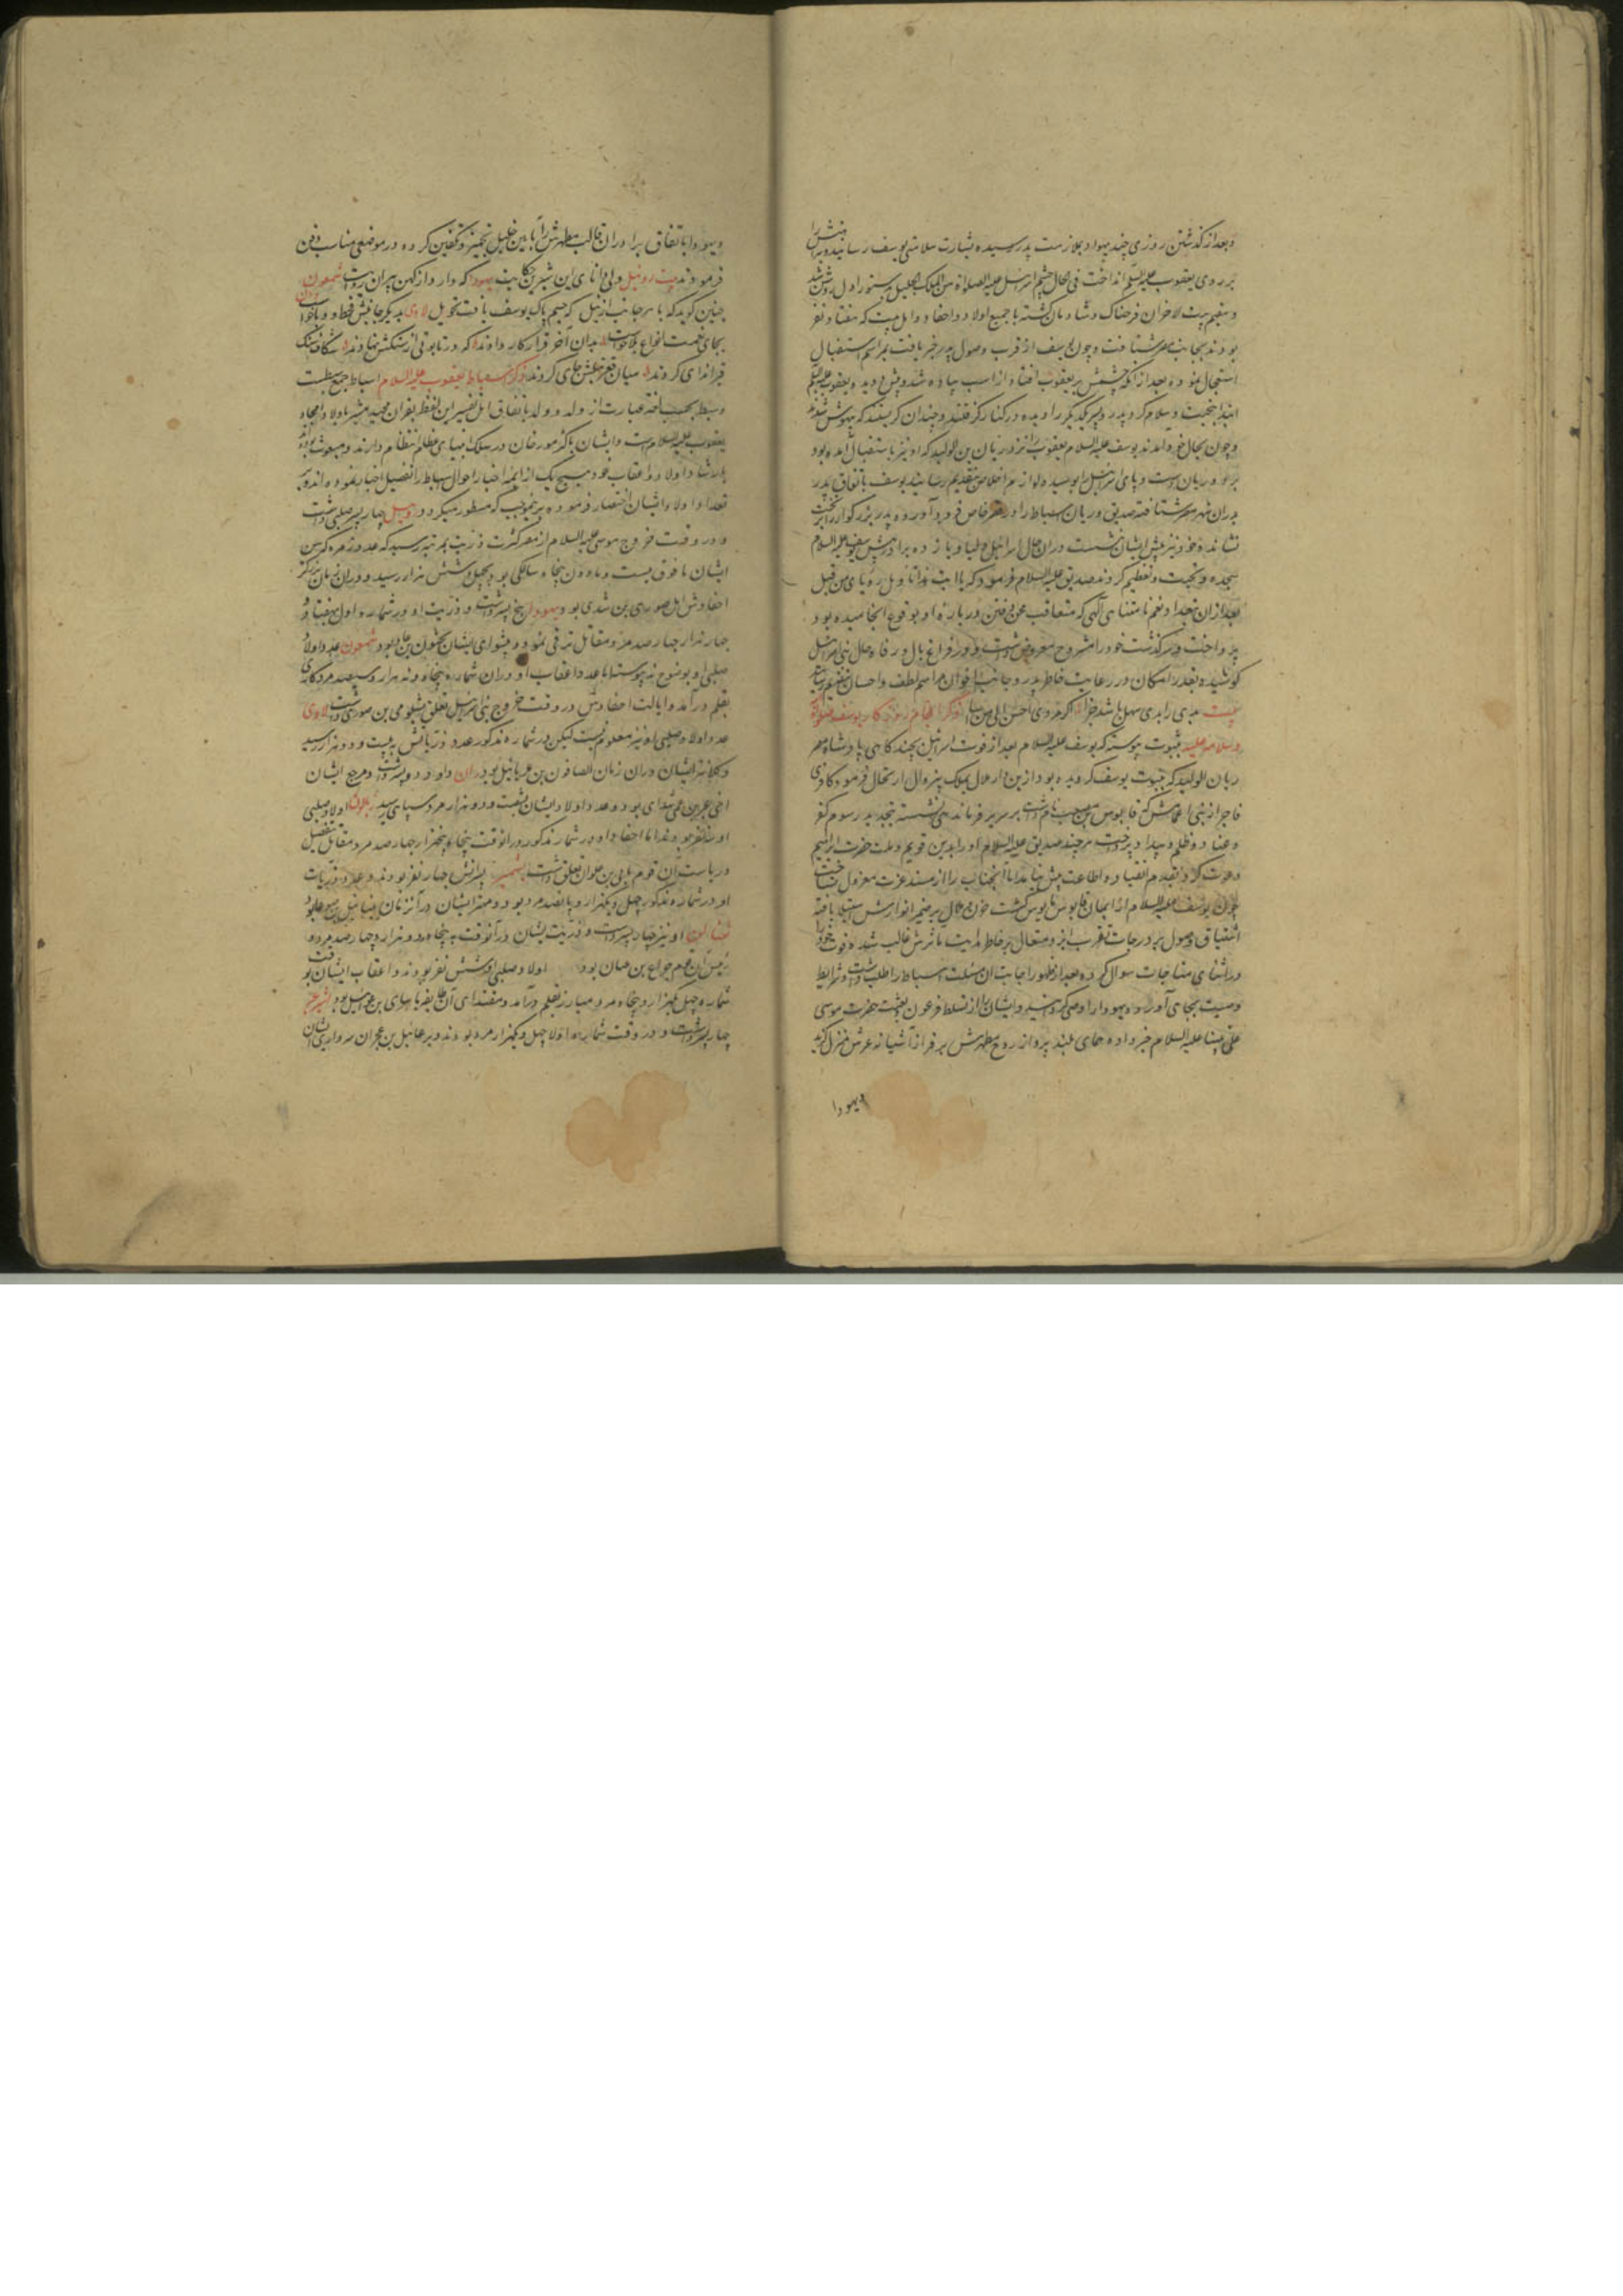 و بعد از گذشتن روزی چند یهودا بملازمت پدر رسیده بشارت سلامتی یوسف رسانید و پیراهنش را
بر روی یعقوب علیه السلم انداخت فی الحال چشم اسرائیل علیه الصلوة من الملک الجلیل بدستور اول روشن شد
و مقیم بیت الاحزان فرحناک و شادمان گشته با جمیع اولاد و احفاد و اهل بیت که هفتاد نفر
بودند بجانب مصر شتافت و چون یوسف از قرب وصول پدر خبر یافت بمراسم استقبال
استعجال نموده بعد از آنکه چشمش بر یعقوب افتاد از اسب پیاده شد و پیش دوید و یعقوب علیه السلم
ابتدا بتحیت و سلام کرد و پدر و پسر یکدیگر را دیده در کنار گرفتند و چندان گریستند که بیهوش شدند
و چون بحال خود آمدند یوسف علیه السلام یعقوب را نزد ریان بن الولید که او نیز باستقبال آمده بود
برد و ریان دست و پای اسرائیل را بوسیده لوازم اخلاص بتقدیم رسانید یوسف باتفاق پدر
بدران شهر مصر شتافته صدیق و ریان اسباط را در قصر خاص فرود آورده پدر بزرگوار را بر تخت
نشانده خود نیز پیش ایشان نشست در آن حال اسرائیل و لیا و یازده برادر پیش یوسف علیه السلام
سجده و تحیت و تعظیم کردند صدیق علیه السلام فرمود که یا ابت هذا تاویل رؤیای من قبل
بعد از آن تعداد نعم نامتناهی الهی که متعاقب محن و فتن در باره او بوقوع انجامیده بود
پرداخت و سرگذشت خود را مشروح معروض داشت و در فراغ بال و رفاه حال بنی اسرائیل
کوشیده بقدر امکان در رعایت خاطر پدر و جانب اخوان مراسم لطف و احسان بتقدیم رسانید
بیت بدی را بدی سهل باشد جزا اگر مردی احسن الی من اسا ذکر انجام روزگار یوسف صلوات
و سلامه علیه بثبوت پیوسته که یوسف علیه السلام بعد از فوت اسرائیل بچندگاهی پادشاه مصر
ریان الولید که بنبوت یوسف گرویده بود ازین دار ملال بملک بیزوال ارتحال فرمود و کافری
فاجر از بنی اعمامش که قابوس بن مصعب نام داشت بر سریر فرماندهی نشسته بتجدید رسوم کفر
و عناد و ظلم و بیداد پرداخت هر چند صدیق علیه السلام او را بدین قویم و ملت حضرت ابراهیم
دعوت کرد بقدم انقیاد و اطاعت پیش نیامد اما آنجناب را از مسند عزت معزول نساخت
چون یوسف علیه السلام از ایمان قابوس مایوس گشت حزن و ملال بر ضمیر انوارش استیلا یافته
اشتیاق وصول بدرجات تقرب ایزد متعال بر خاطر هدایت ماثرش غالب شده فوت خود را
در اثنای مناجات سوال کرده بعد از ظهور اجابت آن مسئلت اسباط را طلب داشت و شرایط
وصیت بجای آورد و یهودا را وصی گردانید و ایشان را از تسلط فرعون و بعثت حضرت موسی
علی نبینا علیه السلام خبر داده همای بلند پرواز روح مطهرش بر فراز آشیانه عرش منزل گزید
و یهودا
و یهودا باتفاق برادران قالب مطهرش را بآیین خلیل تجهیز و تکفین کرده در موضعی مناسب دفن
فرمودند بیت روبیل دلی دانای این شیرین حکایت یهودا که دارد از کهن پیران روایت شمعون
چنین گوید که با هر جانب از نیل که جسم پاک یوسف یافت تحویل لاوی بدیگر جانبش قحط و وبا خواست دان
بجای نعمت انواع بلا خواست بدان آخر قرار کار دادند که در تابوتی از سنگش نهادند شکاف سنگ
قیر اندای کردند میان قعر نیلش جای کردند ذکر اسباط یعقوب علیه السلام اسباط جمع سبطست
و سبط بحسب لغت عبارت از ولد و ولد باتفاق اهل تفسیر این لفظ بقرآن مجید مشیر باولاد امجاد
یعقوب علیه السلام است و ایشان باکثر مورخان در سلک انبیای عظام انتظام دارند و مبعوث بوده‌اند
بارشاد اولاد و اعقاب خود و هیچ یک از ائمه اخبار احوال اسباط را بتفصیل اخبار ننموده‌اند و بر
تعداد اولاد ایشان اختصار فرموده برینموجب که مسطور میگردد روبیل چهار پسر صلبی داشت
و در وقت خروج موسی علیه السلام از مصر کثرت ذریت بمرتبه رسید که عدد زمره که سن
ایشان مافوق بیست و مادون پنجاه سالگی بود بچهل و شش هزار رسید و در آن زمان بزرگتر
احفادش ایل صوری بن شدی بود و یهودا پنج پسر داشت و ذریت او در شماره اول بهفتاد و
چهار هزار چهارصد مرد مقاتل ترقی نمود و پیشوای ایشان نحشون بن عمیاد بود شمعون عدد اولاد
صلبی او بوضوح نه پیوسته اما عدد اعقاب او در آن شماره پنجاه و نه هزار و سیصد مرد کاری
بقلم درآمد و ایالت احفادش در وقت خروج بنی اسرائیل تعلق بشلومی بن صوری داشت لاوی
عدد اولاد صلبی او نیز معلوم نیست لیکن در شماره مذکور عدد ذریاتش به بیست و دو هزار رسید
و کلانتر ایشان در آن زمان الصافون بن عزیائیل بود دان داود دو پسر داشت و مرجع ایشان
اخی عزر بن عمی شدای بود و عدد اولاد ایشان بشصت و دو هزار مرد سپاهی رسید زبالون اولاد صلبی
او سه نفر بودند اما احفاد او در شمار مذکور در آنوقت پنجاه و پنجهزار چهارصد مرد مقاتل بتفصیل
و ریاست آن قوم بابی بن حلوان تعلق داشت یشجر پسرانش چهار نفر بودند و عدد ذریات
او در شماره مذکور چهل و یکهزار و پانصد مرد بود و مهتر ایشان در آن زمان
نفتالی او نیز چهار پسر داشت و ذریت ایشان در آنوقت به پنجاه و دو هزار و چهارصد مرد و
رئیس آن قوم بن عینان بود اولاد صلبی او شش نفر بودند و اعقاب ایشان بوقت
شماره چهل یکهزار و پنجاه مرد مبارز بقلم درآمد و مقتدای آن طایفه بن بود اشیر نیز
چهار پسر داشت و در وقت شماره اولاد چهل و یکهزار مرد بودند و بن عجران سردار ایشان